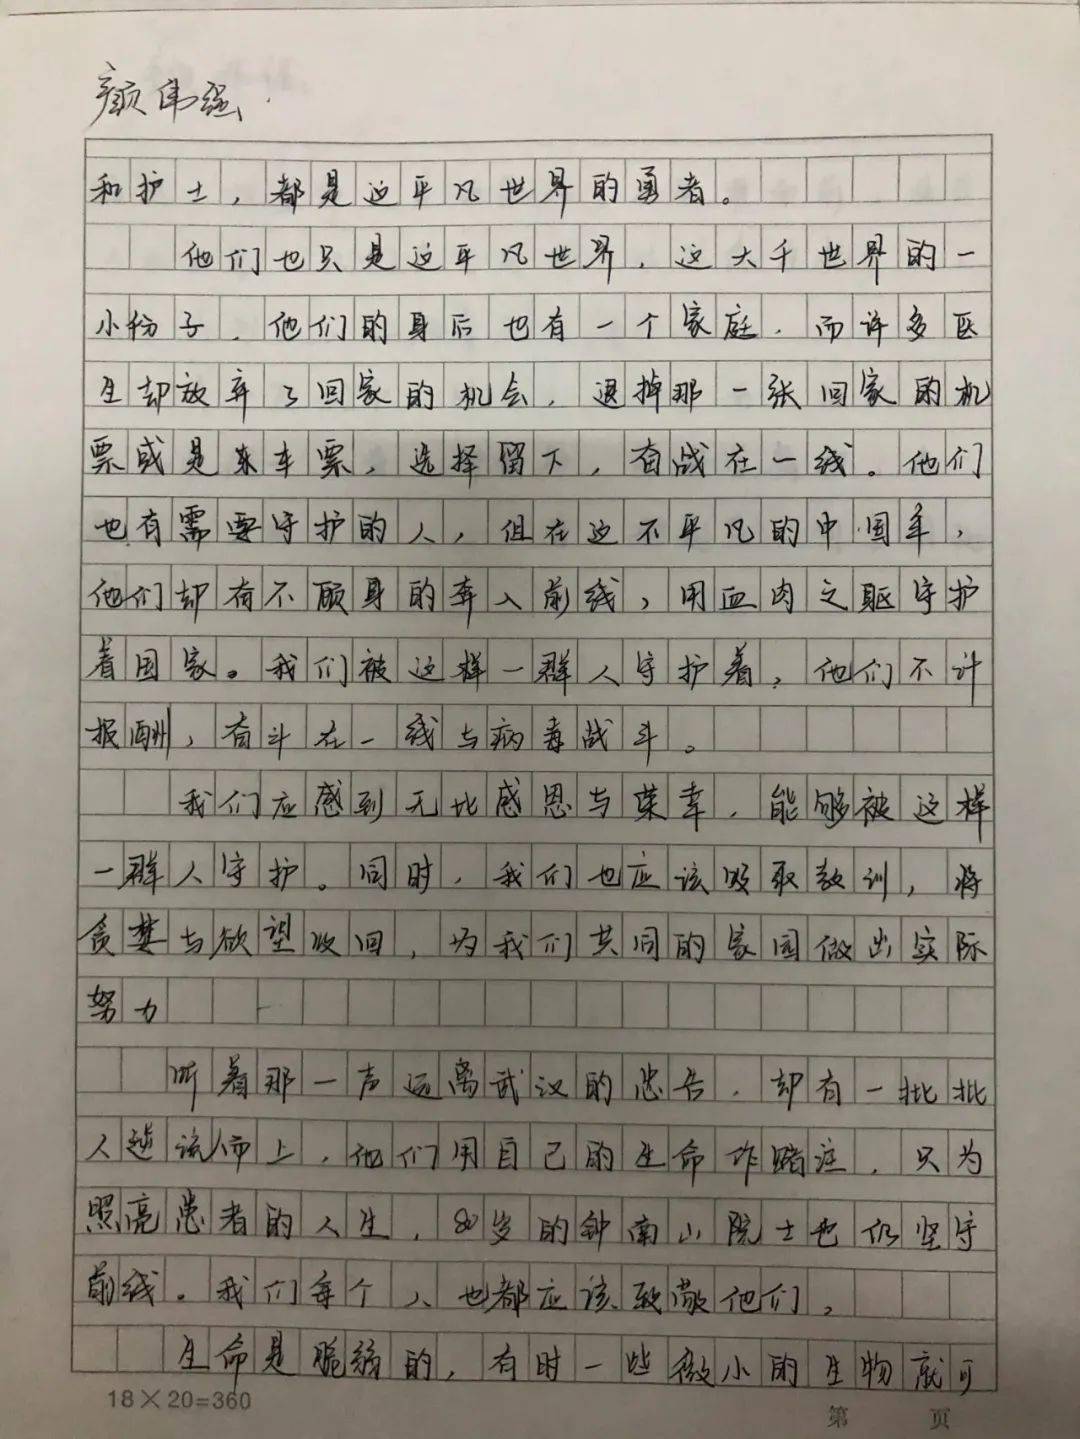 颜伟强
和护士，都是这平凡世界的勇者。
他们也只是这平凡世界，这大千世界的一
小份子．他们的身后也有一个家庭．而许多医
生却放弃了回家的机会，退掉那一张回家的机
票或是车票，选择留下，奋战在一线。他们
也有需要守护的人，但在这不平凡的中国年，
他们却奋不顾身的奔入前线，用血肉之躯守护
着国家。我们被这样一群人守护着，他们不计
报酬，奋斗在一线与病毒战斗。
我们应感到无比感恩与荣幸．能够被这样
一群人守护。同时，我们也应该吸取教训，将
贪婪与欲望收回，为我们共同的家园做出实际
努力
听着那一声远离武汉的忠告．却有一批批
人逆流而上，他们用自己的生命作赌注，只为
照亮患者的人生，80岁的钟南山院士也仍坚守
前线。我们每个人也都应该致敬他们，
生命是脆弱的，有时一些微小的生物就可
18×20=360
第 页